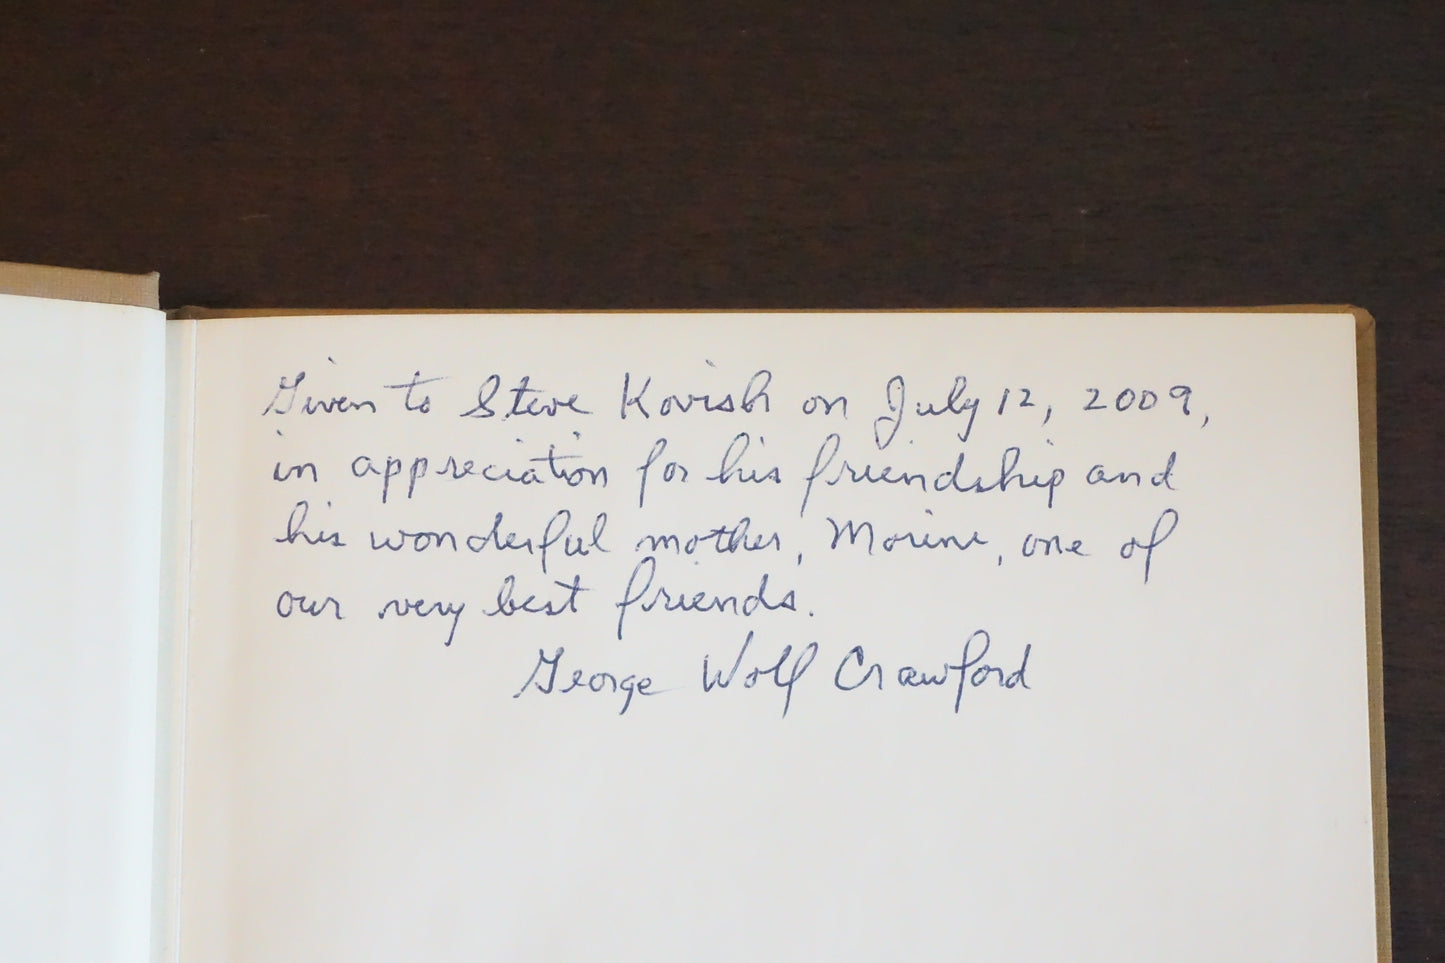 Given to Steve Kovish on July 12, 2009,
in appreciation for his friendship and
his wonderful mother, Morine, one of
our very best friends.
George Wolf Crawford